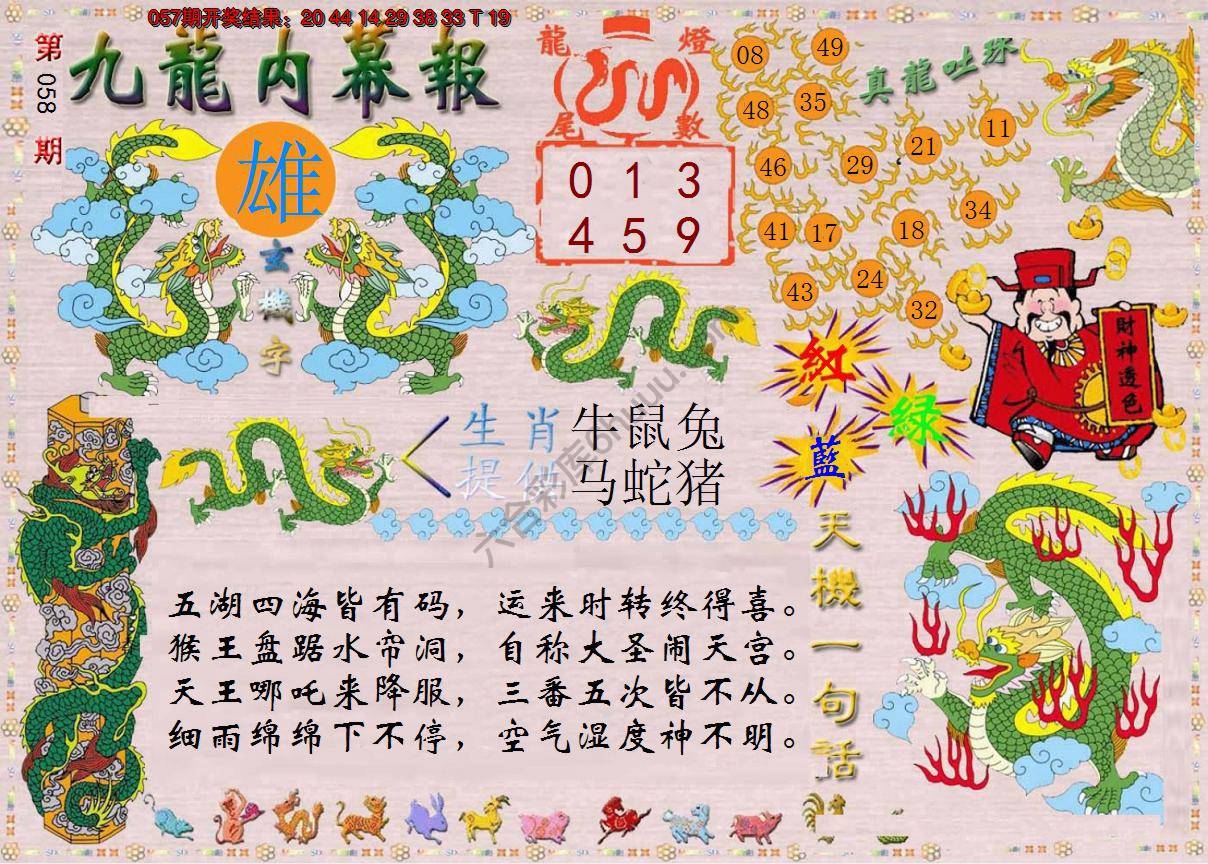 057期开奖结果：20 44 14 29 38 33 T 19
第058期
九龍内幕報
雄
玄機字
龍燈
尾數
0 1 3
4 5 9
真龍吐珠
08
49
48
35
11
21
46
29
34
41
17
18
43
24
32
財神透色
紅
綠
藍
生肖 牛鼠兔
提供 马蛇猪
天機一句話
五湖四海皆有码，运来时转终得喜。
猴王盘踞水帘洞，自称大圣闹天宫。
天王哪吒来降服，三番五次皆不从。
细雨绵绵下不停，空气湿度神不明。